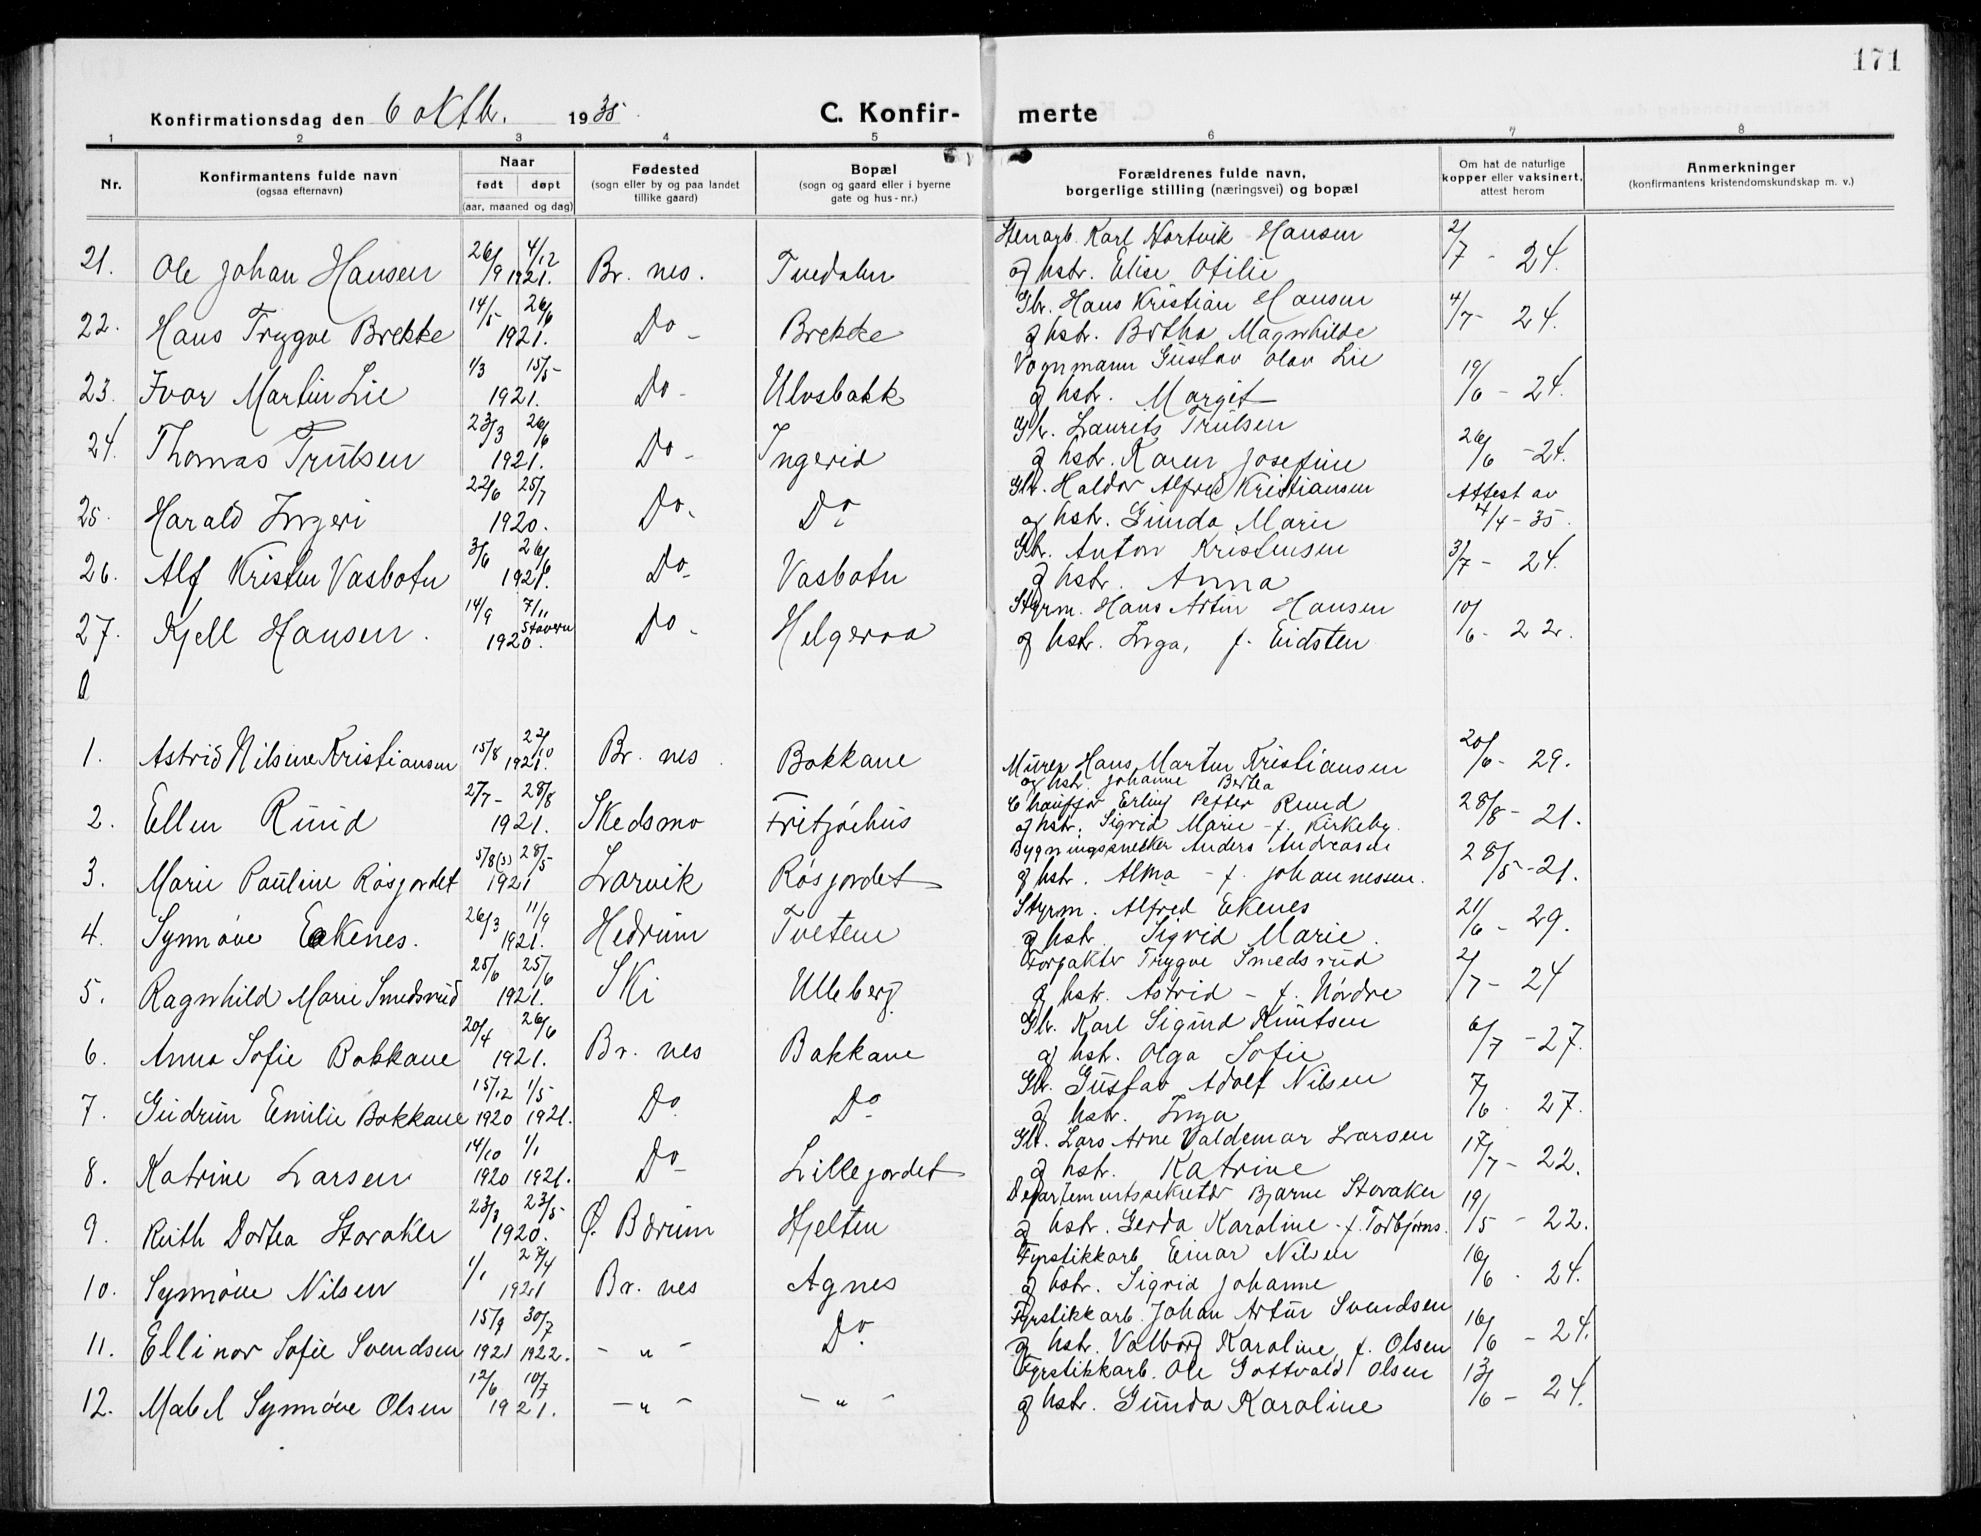 171
Konfirmationsdag den 6 oktbr. 1935.
C. Konfirmerte
1 2 3 4 5 6 7 8
Nr.
Konfirmantens fulde navn
(ogsaa efternavn)
Naar
født døpt
(aar, maaned og dag)
Fødested
(sogn eller by og paa landet
tillike gaard)
Bopæl
(sogn og gaard eller i byerne
gate og hus-nr.)
Forældrenes fulde navn,
borgerlige stilling (næringsvei) og bopæl
Om hat de naturlige
kopper eller vaksinert,
attest herom
Anmerkninger
(konfirmantens kristendomskundskap m. v.)
Stenarb. Karl Hartvik Hansen
21. Ole Johan Hansen 26/9 1921. 4/12 Br. nes. Tvedalen og hstr. Elise Otilie 2/7 - 24.
Gbr. Hans Kristian Hansen
22. Hans Trygve Brekke 14/5 26/6 1921. Do - Brekke og hstr. Bertha Magnhilde 4/7 - 24.
Vognmann Gustav Olav Lie
23. Ivar Martin Lie 1/3 15/5 - 1921. Do - Ulvsbakk og hstr. Margit 19/6 - 24.
Gbr. Laurits Trulsen
24. Thomas Trulsen 23/3 26/6 1921. Do - Ingerid og hstr. Karen Josefine 26/6 - 24.
Gbr. Haldor Alfred Kristiansen
25. Harald Ingeri 22/6 25/7 1920. Do - Do - og hstr. Gunda Marie Attest av 4/4 - 35.
Gbr. Anton Kristensen
26. Alf Kristen Vasbotn 3/6 26/6 1921. Do - Vasbotn og hstr. Anna 3/7 - 24.
Styrm. Hans Artur Hansen
27. Kjell Hansen. 14/9 7/11 Stavern 1920. Do - Helgeroa og hstr. Inga, f. Eidsten 10/6 - 22.
1. Astrid Nilsine Kristiansen 15/8 22/10 1921. Br. nes. Bakkane Murer Hans Martin Kristiansen 20/6 - 29.
og hstr. Johanne Bertea
Chauffør Erling Petter Ruud
2. Ellen Ruud 27/7 - 28/8 1921. Skedsmo Fritzöehus og hstr. Sigrid Marie - f. Kirkeby. 28/8 - 21.
Bygningssnekker Anders Andreasen
3. Marie Pauline Røsjordet 5/8 (5) 28/5 1921 Larvik Røsjordet og hstr. Alma - f. Johannessen. 28/5 - 21.
Styrm. Alfred Ekenes
4. Synnøve Ekenes. 26/3 11/9 1921. Hedrum Tvetene og hstr. Sigrid Marie. 21/6 - 29.
Forpakter Trygve Smedsrud
5. Ragnhild Marie Smedsrud 25/6 25/6 1921. Ski Ulleberg og hstr. Astrid - f. Nordre 2/7 - 24
Gbr. Karl Sigurd Knutsen
6. Anna Sofie Bakkane 20/4 26/6 1921. Br. nes Bakkane og hstr. Olga Sofie 6/7 - 27.
Gbr. Gustav Adolf Nilsen
7. Gudrun Emilie Bakkane 15/12 1920 1/5 1921. Do Do og hstr. Inga 7/6. 27.
Gbr. Lars Arne Valdemar Larsen
8. Katrine Larsen 14/10 1920 1/1 1921. Do - Lillejordet og hstr. Katrine 17/7 - 22.
Departementssekretær Bjarne Storaker
9. Ruth Dortea Storaker 23/3 23/5 - 1920. Ø. Bærum Hjelten og hstr. Gerda Karoline - f. Torbjørns. 19/5 - 22.
Fyrstikkarb Einar Nilsen
10. Synnøve Nilsen 1/1 24/4 1921 Br. nes Agnes og hstr. Sigrid Johanne 16/6 - 24.
Fyrstikkarb. Johan Artur Svendsen
11. Ellinor Sofie Svendsen 15/9 1921 30/7 1922. - " - Do og hstr. Valborg Karoline, f. Olsen 16/6 - 24.
Fyrstikkarb. Ole Gottvald Olsen
12. Mabel Synnøve Olsen 12/6 10/7 1921. - " - - " - og hstr. Gunda Karoline 13/6 - 24.